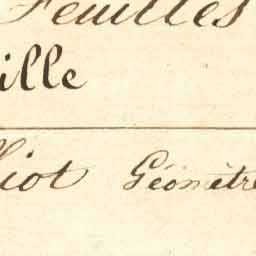 Feuilles
ille
liot Géomètre